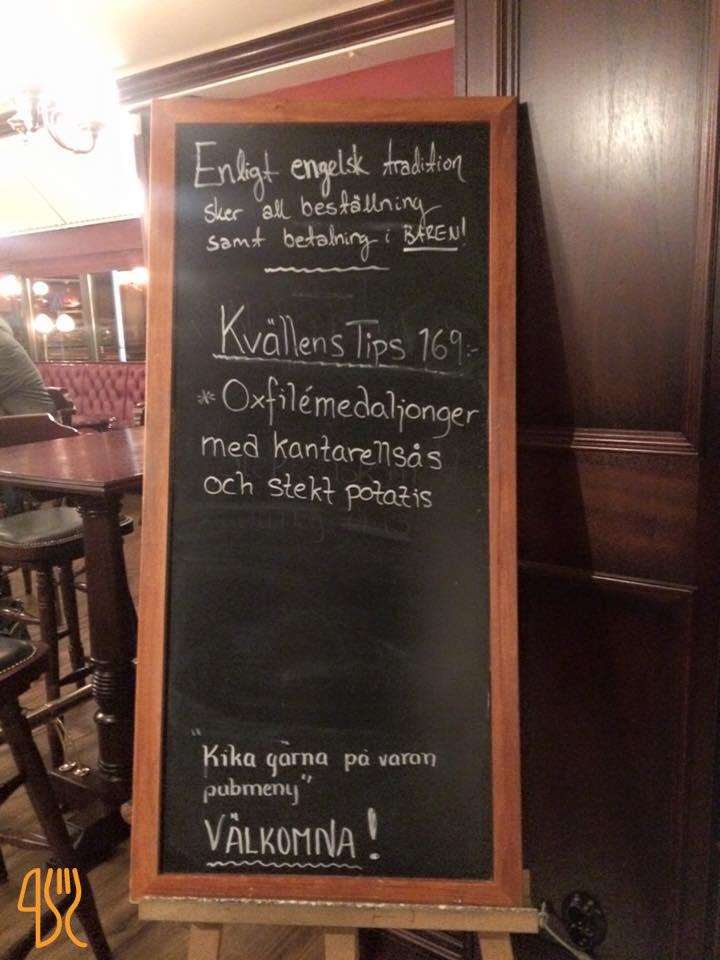 Enligt engelsk tradition
sker all beställning
samt betalning i BAREN!
Kvällens Tips 169:-
* Oxfilémedaljonger
med kantarellsås
och stekt potatis
"Kika gärna på varan
pubmeny"
VÄLKOMNA!